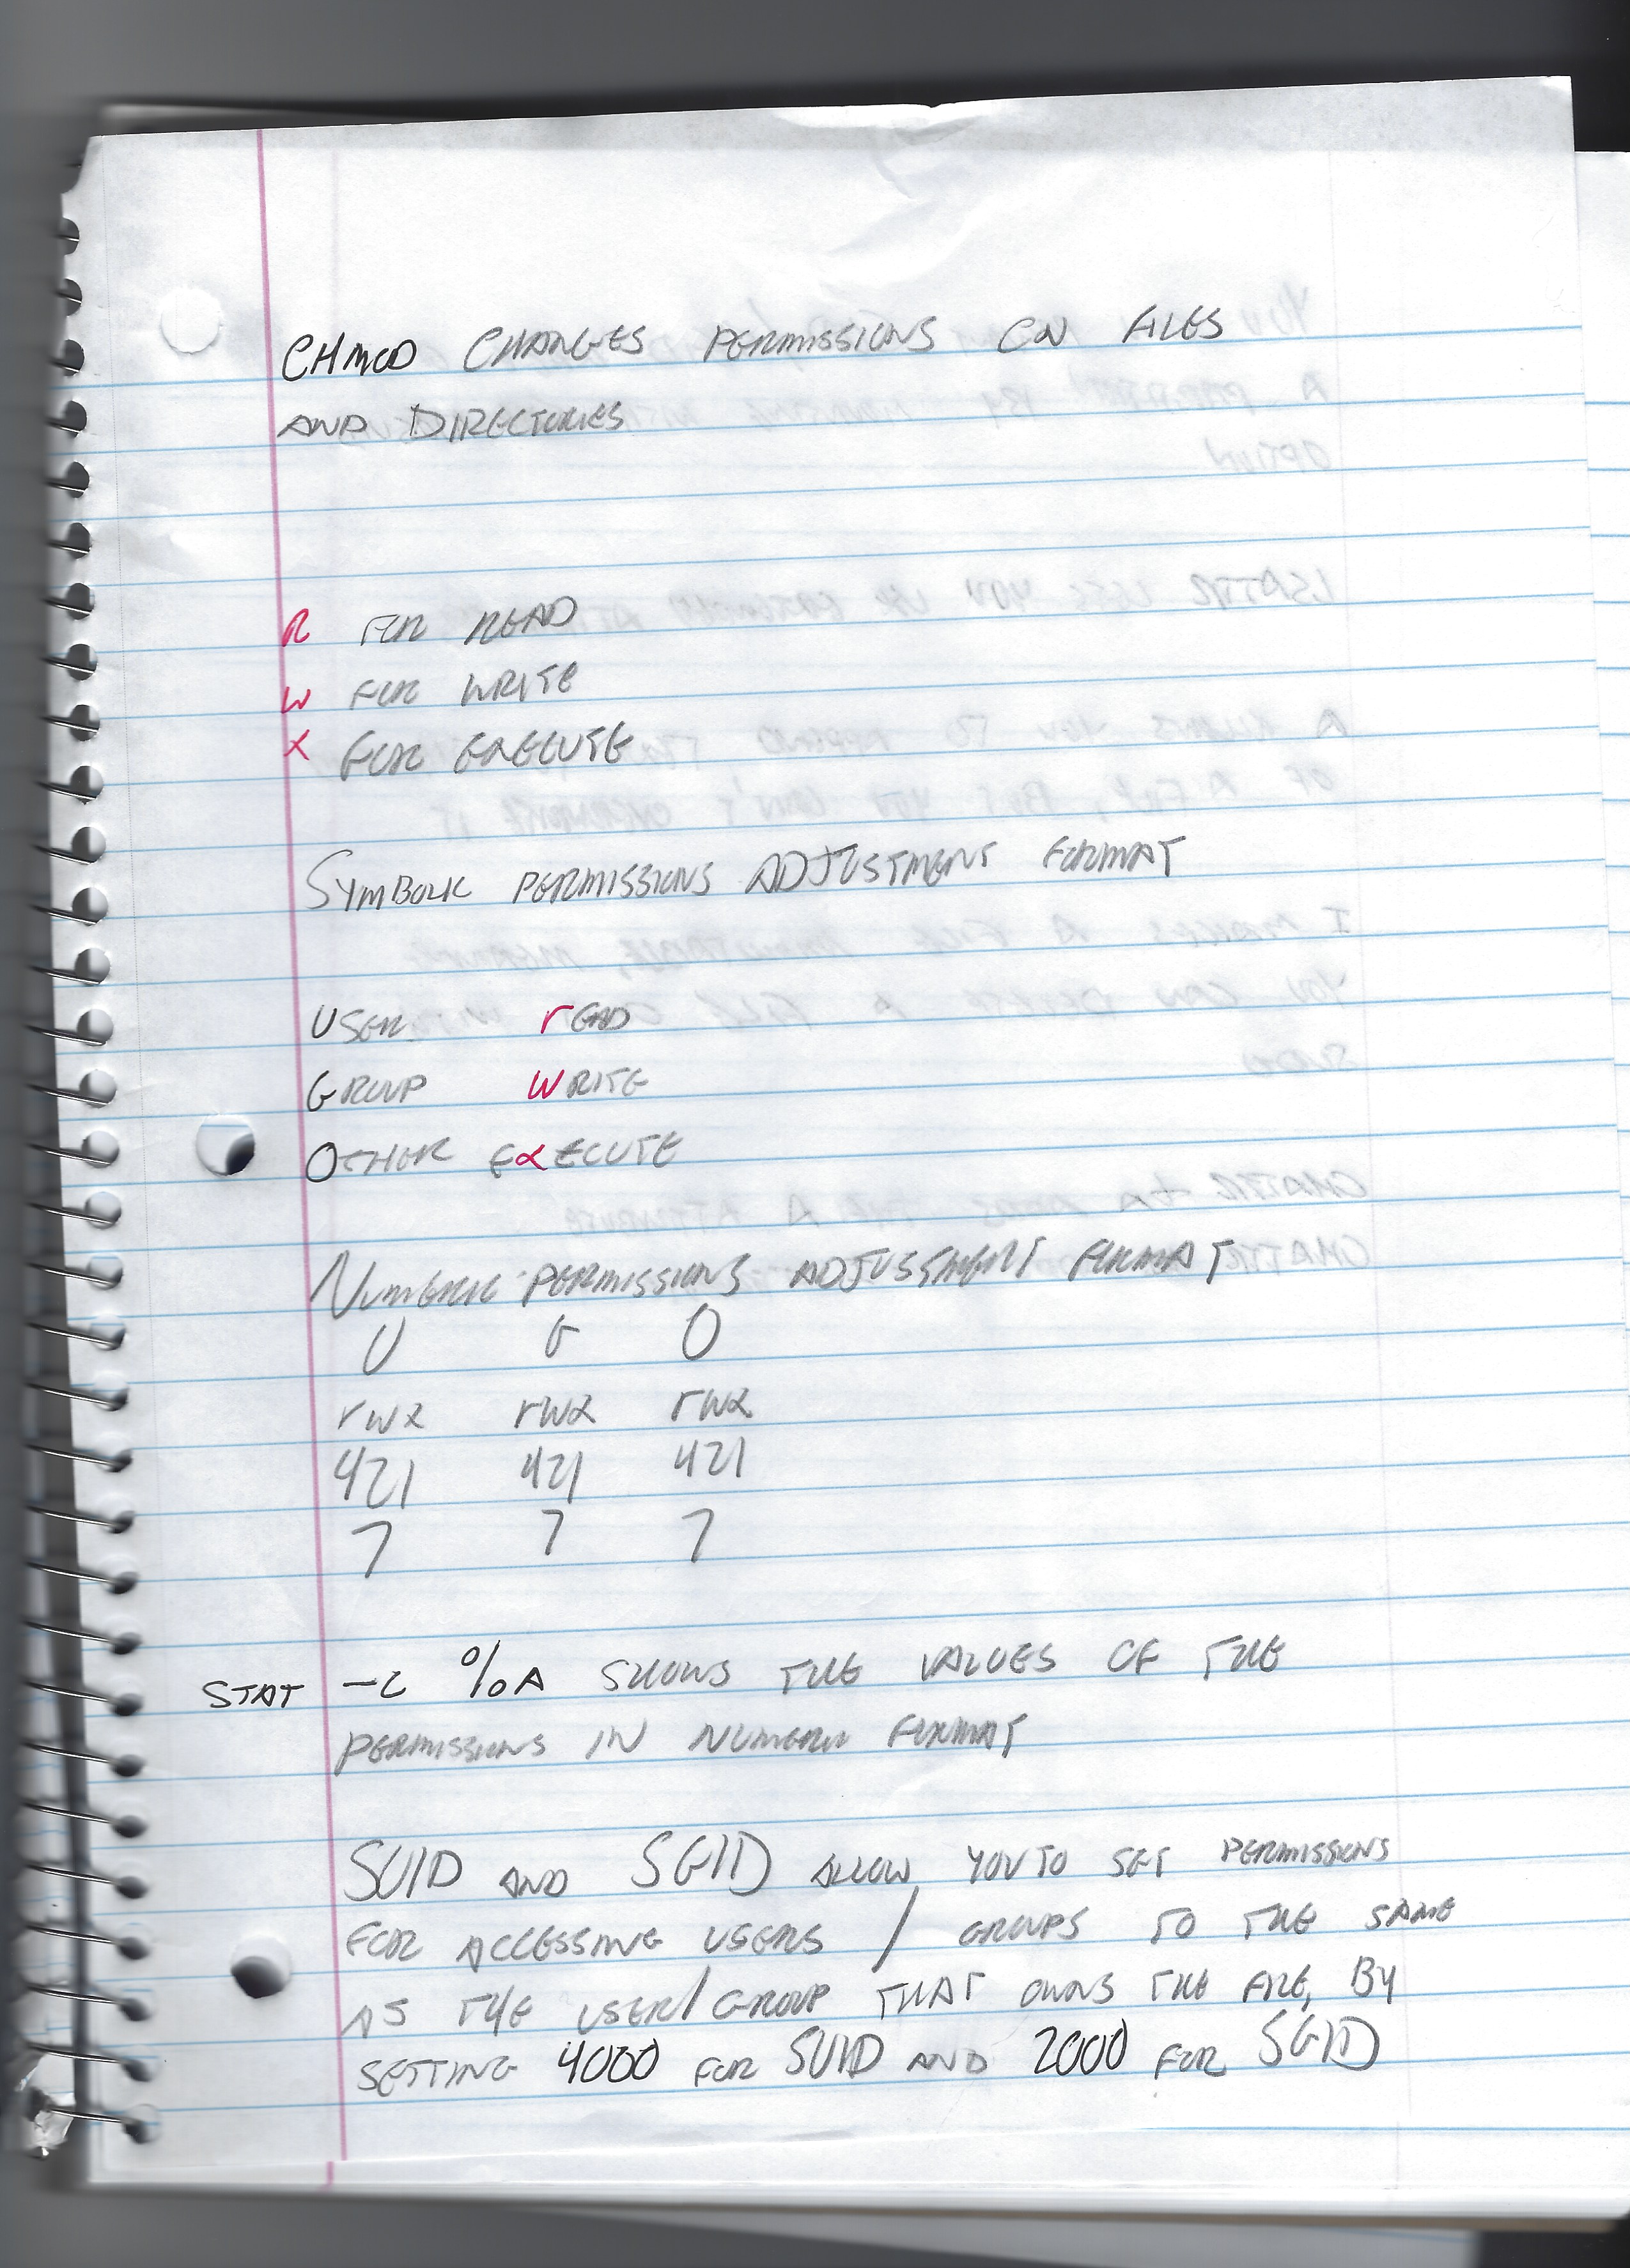 CHMOD CHANGES PERMISSIONS ON FILES
AND DIRECTORIES
R FOR READ
W FOR WRITE
X FOR EXECUTE
SYMBOLIC PERMISSIONS ADJUSTMENT FORMAT
USER rEAD
GROUP WRITE
OTHER EXECUTE
NUMERIC PERMISSIONS ADJUSTMENT FORMAT
U G O
rwx rwx rwx
421 421 421
7 7 7
STAT -C %A SHOWS THE VALUES OF THE
PERMISSIONS IN NUMERIC FORMAT
SUID AND SGID ALLOW YOU TO SET PERMISSIONS
FOR ACCESSING USERS / GROUPS TO THE SAME
AS THE USER/GROUP THAT OWNS THE FILE, BY
SETTING 4000 FOR SUID AND 2000 FOR SGID